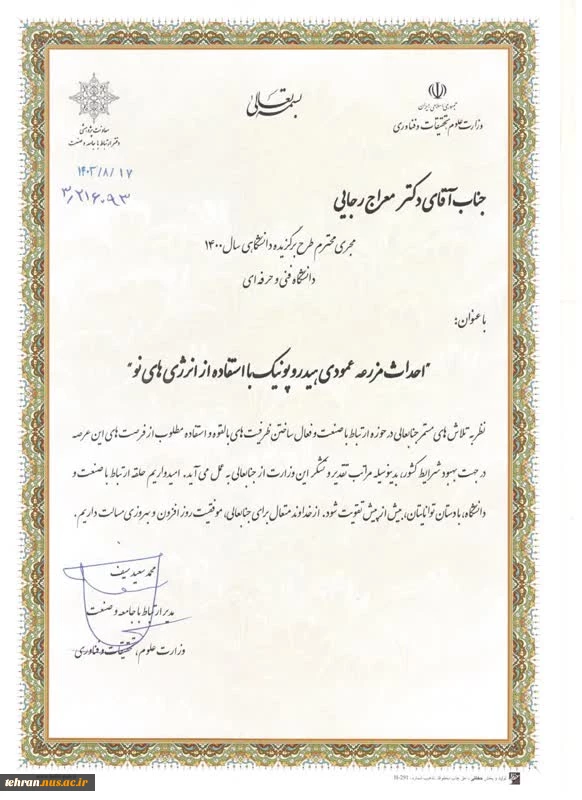 بسمه تعالی
جمهوری اسلامی ایران
وزارت علوم، تحقیقات و فناوری
معاونت پژوهشی
دفتر ارتباط با جامعه و صنعت
۱۴۰۲/۸/۱۷
۳/۲۱۶۰۹۳
جناب آقای دکتر معراج رجایی
مجری محترم طرح برگزیده دانشگاهی سال ۱۴۰۰
دانشگاه فنی و حرفه ای
با عنوان:
"احداث مزرعه عمودی هیدروپونیک با استفاده از انرژی های نو"
نظر به تلاش های مستمر جنابعالی در حوزه ارتباط با صنعت و فعال ساختن ظرفیت های بالقوه و استفاده مطلوب از فرصت های این عرصه
در جهت بهبود شرایط کشور، بدینوسیله مراتب تقدیر و تشکر این وزارت از جنابعالی به عمل می آید. امیدواریم حلقه ارتباط با صنعت و
دانشگاه، با دستان توانایتان، بیش از پیش تقویت شود. از خداوند متعال برای جنابعالی، موفقیت روز افزون و بهروزی مسالت داریم.
محمد سعید سیف
مدیر ارتباط با جامعه و صنعت
وزارت علوم، تحقیقات و فناوری
tehran.nus.ac.ir
تولید و پخش حقانی - حق چاپ محفوظ، تذهیب شماره: H-291